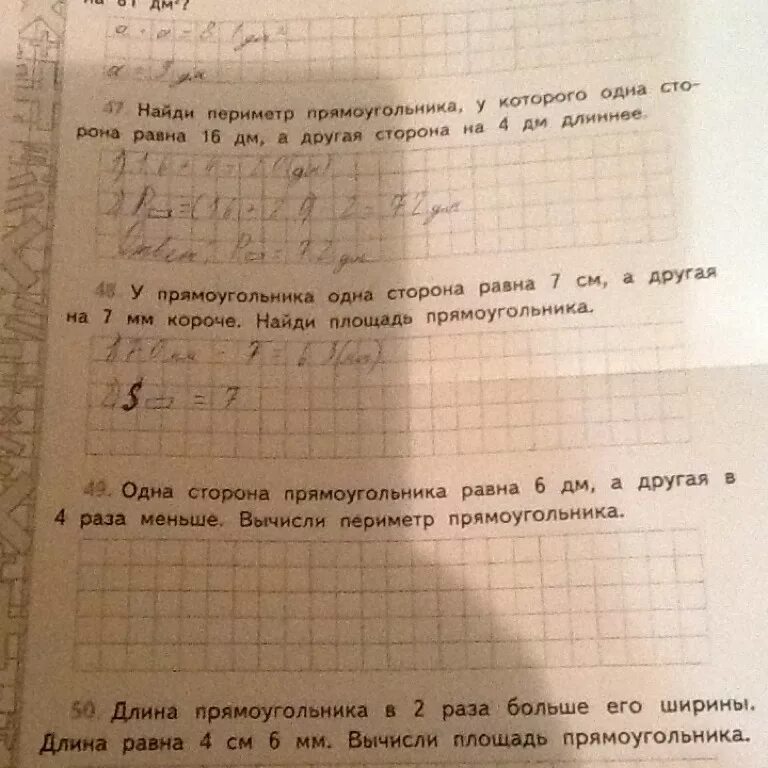 на 81 дм²?
a · a = 81 дм²
a = 9 дм
47. Найди периметр прямоугольника, у которого одна сто-
рона равна 16 дм, а другая сторона на 4 дм длиннее.
1) 16 + 4 = 20 (дм)
2) P▭ = (16 + 20) · 2 = 72 дм
Ответ: P▭ = 72 дм
48. У прямоугольника одна сторона равна 7 см, а другая
на 7 мм короче. Найди площадь прямоугольника.
1) 70 мм - 7 = 63 (мм)
2) S▭ = 7
49. Одна сторона прямоугольника равна 6 дм, а другая в
4 раза меньше. Вычисли периметр прямоугольника.
50. Длина прямоугольника в 2 раза больше его ширины.
Длина равна 4 см 6 мм. Вычисли площадь прямоугольника.